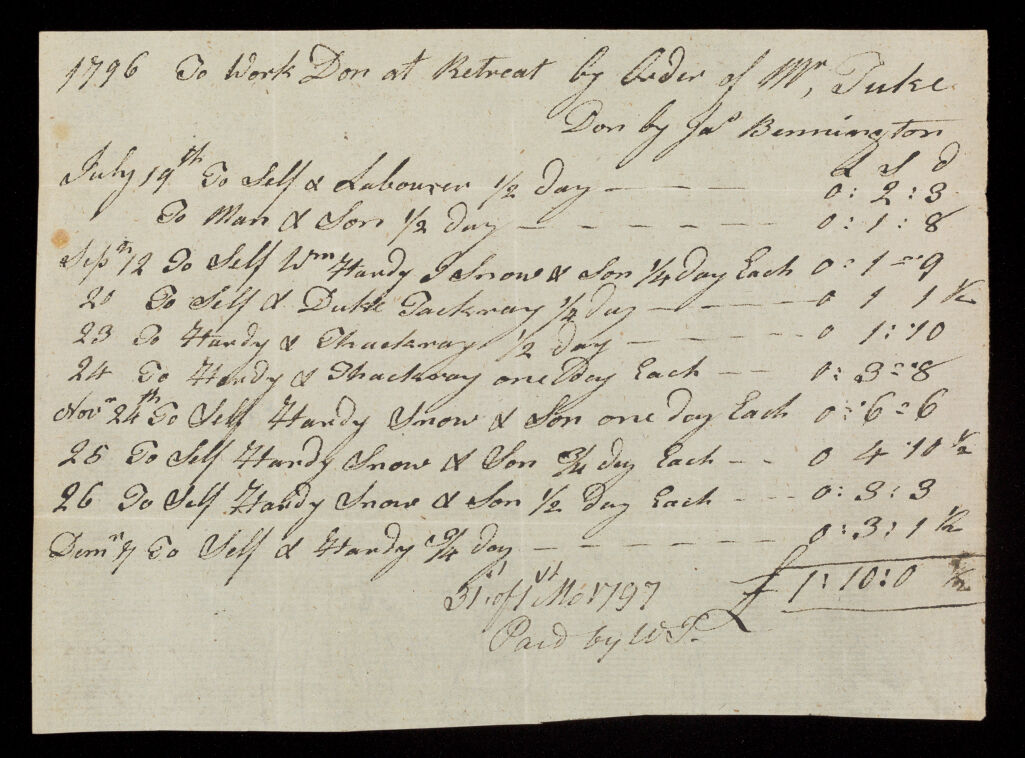 1796 To Work Don at Retreat by Order of Mr, Tuke
Don by Jas Bennington
£ S d
July 19th To Self & Labourer 1/2 day — — — 0: 2: 3
To Man & Son 1/2 day — — — — — — 0: 1: 8
Sepr 12 To Self Wm Hardy J Snow & Son 1/4 day Each 0 : 1 = 9
20 To Self & Duke Tackray 1/4 day — — — — 0 1 1 1/2
23 To Hardy & Thackray 1/2 day — — — — 0 1:10
24 To Hardy & Thackray one Day Each — — 0: 3 = 8
Novr 24th To Self Hardy Snow & Son one day Each 0 = 6 = 6
25 To Self Hardy Snow & Son 3/4 day Each — — 0 4 10 1/2
26 To Self Hardy Snow & Son 1/2 Day Each — — — 0: 3: 3
Demr 7 To Self & Hardy 3/4 day — — — — — — 0: 3: 1 1/2
£ 1: 10: 0 1/2
31st of 1st Mo 1797
Paid by W T.